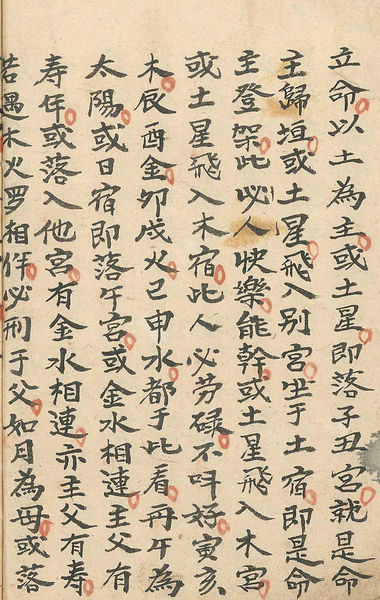 立命以土為主或土星即落子丑宮就是命
主歸垣或土星飛入别宮坐于土宿即是命
主登架此必人快樂能幹或土星飛入木宮
或土星飛入木宿此人必劳碌不叫好寅亥
木辰酉金卯戌火己申水都于此看再午為
太陽或日宿即落午宮或金水相連主父有
寿年或落入他宮有金水相連亦主父有寿
若遇木火罗相伴必刑于父如月為母或落